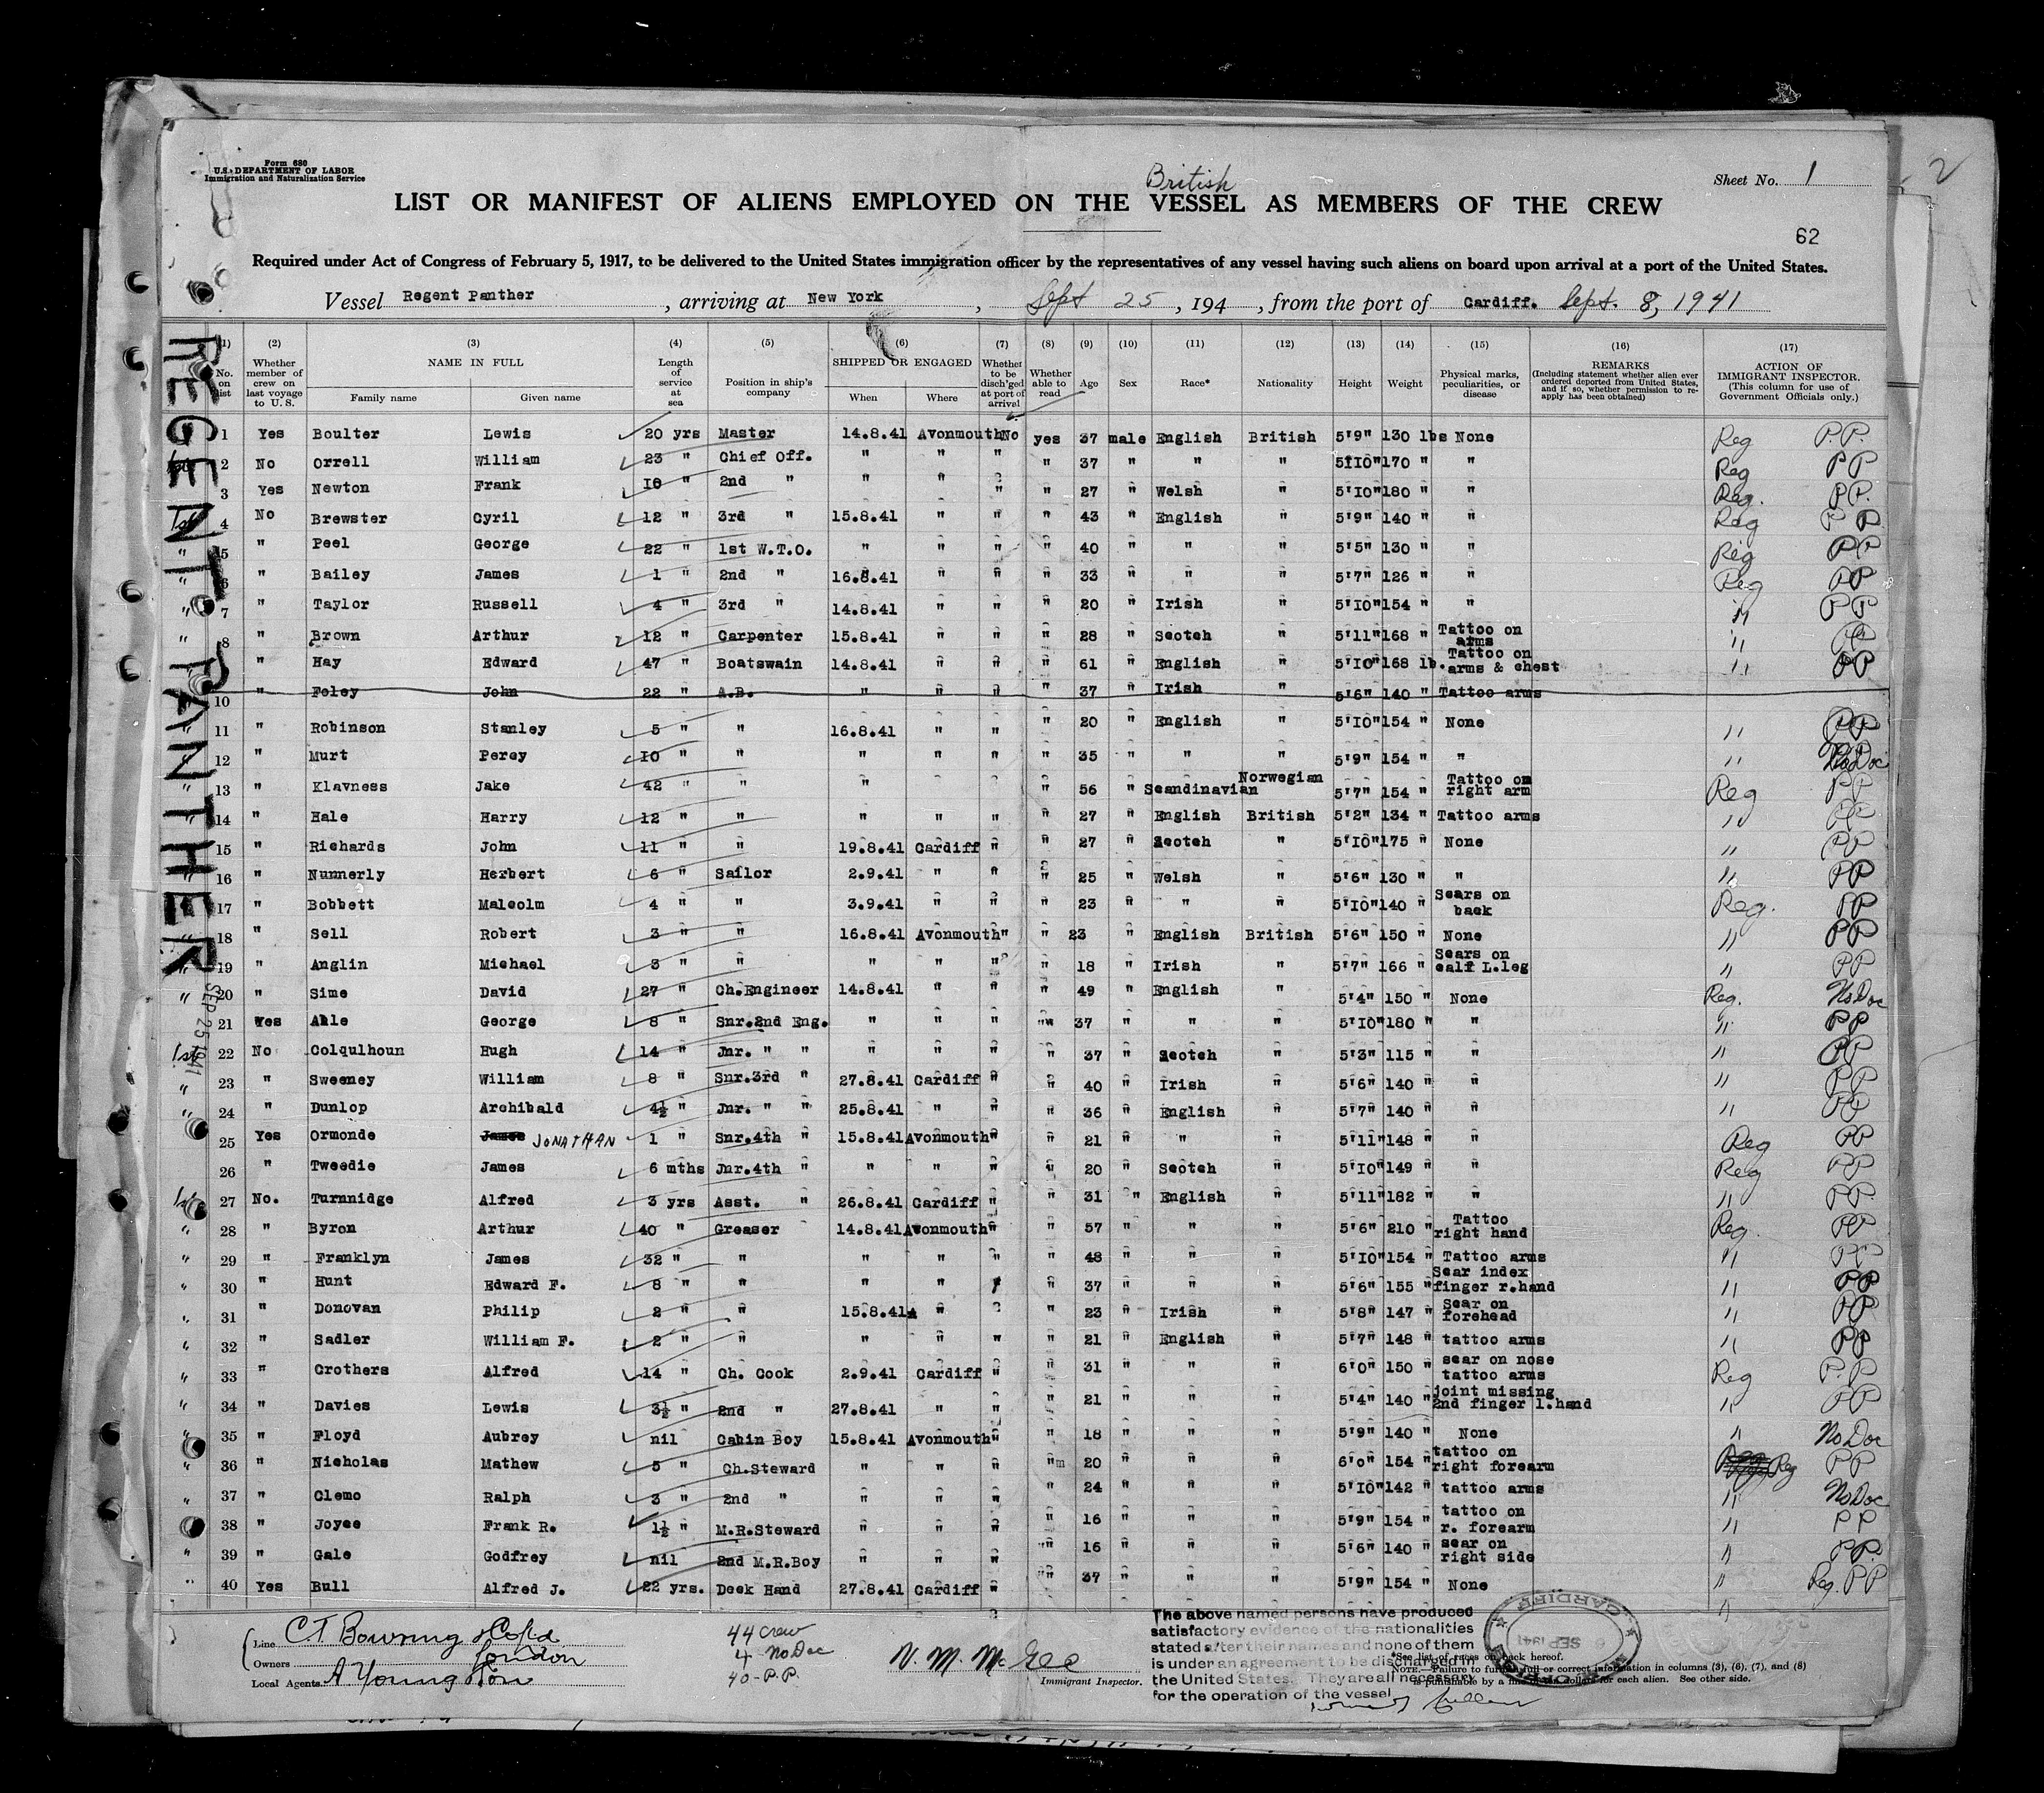 Form 680
U.S. DEPARTMENT OF LABOR
Immigration and Naturalization Service
British
Sheet No. 1
2
LIST OR MANIFEST OF ALIENS EMPLOYED ON THE VESSEL AS MEMBERS OF THE CREW
62
Required under Act of Congress of February 5, 1917, to be delivered to the United States immigration officer by the representatives of any vessel having such aliens on board upon arrival at a port of the United States.
Vessel Regent Panther, arriving at New York, Sept 25, 194, from the port of Cardiff. Sept. 8, 1941
REGENT PANTHER
SEP 25 1941
(1) (2) (3) (4) (5) (6) (7) (8) (9) (10) (11) (12) (13) (14) (15) (16) (17)
No. on list | Whether member of crew on last voyage to U. S. | NAME IN FULL Family name Given name | Length of service at sea | Position in ship's company | SHIPPED OR ENGAGED When Where | Whether to be disch'ged at port of arrival | Whether able to read | Age | Sex | Race* | Nationality | Height | Weight | Physical marks, peculiarities, or disease | REMARKS (Including statement whether alien ever ordered deported from United States, and if so, whether permission to re-apply has been obtained) | ACTION OF IMMIGRANT INSPECTOR. (This column for use of Government Officials only.)
1 Yes Boulter Lewis 20 yrs Master 14.8.41 Avonmouth No yes 37 male English British 5'9" 130 lbs None Reg P.P.
2 No Orrell William 23 " Chief Off. " " " " 37 " " " 5'10" 170 " " Reg PP
3 Yes Newton Frank 10 " 2nd " " " " " 27 " Welsh " 5'10" 180 " " Reg. P.P.
1st 4 No Brewster Cyril 12 " 3rd " 15.8.41 " " " 43 " English " 5'9" 140 " " Reg P P
" 5 " Peel George 22 " 1st W.T.O. " " " " 40 " " " 5'5" 130 " " Reg PP
" 6 " Bailey James 1 " 2nd " 16.8.41 " " " 33 " " " 5'7" 126 " " Reg PP
" 7 " Taylor Russell 4 " 3rd " 14.8.41 " " " 20 " Irish " 5'10" 154 " " " PP
" 8 " Brown Arthur 12 " Carpenter 15.8.41 " " " 28 " Scotch " 5'11" 168 " Tattoo on arms " PP
" " Hay Edward 47 " Boatswain 14.8.41 " " " 61 " English " 5'10" 168 lb. Tattoo on arms & chest " PP
10 " Foley John 22 " A.B. " " " " 37 " Irish " 5'6" 140 " Tattoo arms
" 11 " Robinson Stanley 5 " " 16.8.41 " " " 20 " English " 5'10" 154 " None " PP
" 12 " Murt Percy 10 " " " " " " 35 " " " 5'9" 154 " " " No Doc
" 13 " Klavness Jake 42 " " " " 56 " Scandinavian Norwegian 5'7" 154 " Tattoo on right arm Reg PP
" 14 " Hale Harry 12 " " " " " " 27 " English British 5'2" 134 " Tattoo arms " PP
" 15 " Richards John 11 " " 19.8.41 Cardiff " " 27 " Scotch " 5'10" 175 " None " PP
" 16 " Nunnerly Herbert 6 " Sailor 2.9.41 " " " 25 " Welsh " 5'6" 130 " " " PP
" 17 " Bobbett Malcolm 4 " " 3.9.41 " " " 23 " " " 5'10" 140 " Scars on back Reg. PP
" 18 " Sell Robert 3 " " 16.8.41 Avonmouth " " 23 " English British 5'6" 150 " None " PP
" 19 " Anglin Michael 3 " " " " " " 18 " Irish " 5'7" 166 " Scars on calf L.leg " PP
" 20 " Sime David 27 " Ch.Engineer 14.8.41 " " " 49 " English " 5'4" 150 " None Reg. No Doc
21 Yes Able George 8 " Snr.2nd Eng. " " " " 37 " " " 5'10" 180 " " " PP
1st 22 No Colqulhoun Hugh 14 " Jnr. " " " " " " 37 " Scotch " 5'3" 115 " " " PP
" 23 " Sweeney William 8 " Snr.3rd " 27.8.41 Cardiff " " 40 " Irish " 5'6" 140 " " " PP
" 24 " Dunlop Archibald 4½ " Jnr. " " 25.8.41 " " " 36 " English " 5'7" 140 " " " PP
25 Yes Ormonde James JONATHAN 1 " Snr.4th " 15.8.41 Avonmouth " " 21 " " " 5'11" 148 " " Reg PP
26 " Tweedie James 6 mths Jnr.4th " " " " " 20 " Scotch " 5'10" 149 " " Reg PP
1st 27 No. Turnnidge Alfred 3 yrs Asst. " 26.8.41 Cardiff " " 31 " English " 5'11" 182 " " " PP
" 28 " Byron Arthur 40 " Greaser 14.8.41 Avonmouth " " 57 " " " 5'6" 210 " Tattoo right hand Reg. PP
" 29 " Franklyn James 32 " " " " " " 48 " " " 5'10" 154 " Tattoo arms " PP
" 30 " Hunt Edward F. 8 " " " " " " 37 " " " 5'6" 155 " Scar index finger r.hand " PP
" 31 " Donovan Philip 2 " " 15.8.41 " " 23 " Irish " 5'8" 147 " Scar on forehead " PP
" 32 " Sadler William F. 2 " " " " " " 21 " English " 5'7" 148 " tattoo arms " PP
" 33 " Crothers Alfred 14 " Ch. Cook 2.9.41 Cardiff " " 31 " " " 6'0" 150 " scar on nose tattoo arms Reg P.P
" 34 " Davies Lewis 3½ " 2nd " 27.8.41 " " " 21 " " " 5'4" 140 " joint missing 2nd finger l.hand " PP
" 35 " Floyd Aubrey nil Cabin Boy 15.8.41 Avonmouth " " 18 " " " 5'9" 140 " None " No Doc
" 36 " Nicholas Mathew 5 " Ch.Steward " " " " 20 " " " 6'0" 154 " tattoo on right forearm Reg PP
" 37 " Clemo Ralph 3 " 2nd " " " " " 24 " " " 5'10" 142 " tattoo arms " No Doc
" 38 " Joyce Frank R. 1½ " M.R.Steward " " " " 16 " " " 5'9" 154 " tattoo on r. forearm " PP
" 39 " Gale Godfrey nil 2nd M.R.Boy " " " " 16 " " " 5'6" 140 " scar on right side " PP.
" 40 Yes Bull Alfred J. 22 yrs. Deck Hand 27.8.41 Cardiff " " 37 " " " 5'9" 154 " None " Reg. PP
Line C.T. Bowring & Co Ld
Owners London
Local Agents A Young & Son
44 crew
4 - No Doc
40 - P.P.
V. M. McGee
Immigrant Inspector.
The above named persons have produced
satisfactory evidence of the nationalities
stated after their names and none of them
is under an agreement to be discharged in
the United States. They are all necessary
for the operation of the vessel
CARDIFF
6 SEP 1941
*See list of races on back hereof.
NOTE.—Failure to furnish full or correct information in columns (3), (6), (7), and (8)
is punishable by a fine of ten dollars for each alien. See other side.